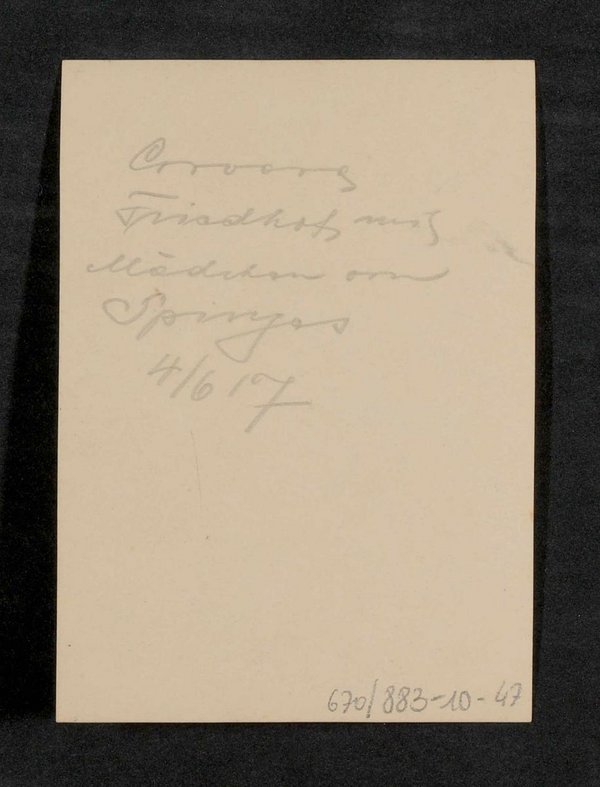 Corvara
Friedhof mit
Mädchen von
Spinges
4/6 17
670/883-10-47